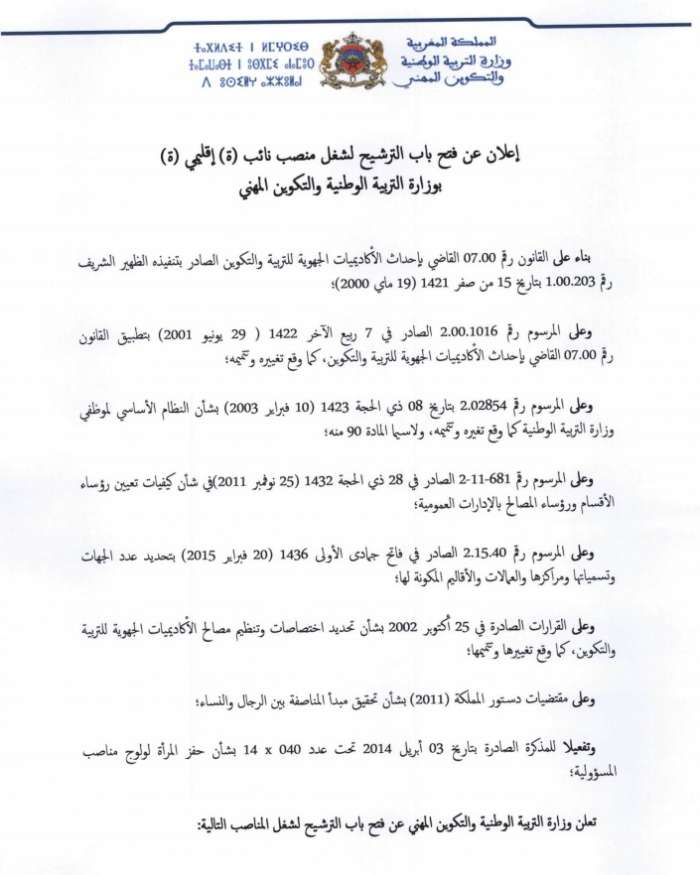 المملكة المغربية
وزارة التربية الوطنية
والتكوين المهني
ⵜⴰⴳⵍⴷⵉⵜ ⵏ ⵍⵎⵖⵔⵉⴱ
ⵜⴰⵎⴰⵡⴰⵙⵜ ⵏ ⵓⵙⴳⵎⵉ ⴰⵏⴰⵎⵓⵔ
ⴷ ⵓⵙⵎⵓⵜⵜⴳ ⴰⵣⵣⵓⵍⴰⵏ
إعلان عن فتح باب الترشيح لشغل منصب نائب (ة) إقليمي (ة)
بوزارة التربية الوطنية والتكوين المهني
بناء على القانون رقم 07.00 القاضي بإحداث الأكاديميات الجهوية للتربية والتكوين الصادر بتنفيذه الظهير الشريف
رقم 1.00.203 بتاريخ 15 من صفر 1421 (19 ماي 2000)؛
وعلى المرسوم رقم 2.00.1016 الصادر في 7 ربيع الآخر 1422 ( 29 يونيو 2001) بتطبيق القانون
رقم 07.00 القاضي بإحداث الأكاديميات الجهوية للتربية والتكوين، كما وقع تغييره وتتميمه؛
وعلى المرسوم رقم 2.02854 بتاريخ 08 ذي الحجة 1423 (10 فبراير 2003) بشأن النظام الأساسي لموظفي
وزارة التربية الوطنية كما وقع تغيره وتتميمه، ولاسيما المادة 90 منه؛
وعلى المرسوم رقم 681-11-2 الصادر في 28 ذي الحجة 1432 (25 نوفمبر 2011)في شأن كيفيات تعيين رؤساء
الأقسام ورؤساء المصالح بالإدارات العمومية؛
وعلى المرسوم رقم 2.15.40 الصادر في فاتح جمادى الأولى 1436 (20 فبراير 2015) بتحديد عدد الجهات
وتسمياتها ومراكزها والعمالات والأقاليم المكونة لها؛
وعلى القرارات الصادرة في 25 أكتوبر 2002 بشأن تحديد اختصاصات وتنظيم مصالح الأكاديميات الجهوية للتربية
والتكوين، كما وقع تغييرها وتتميمها؛
وعلى مقتضيات دستور المملكة (2011) بشأن تحقيق مبدأ المناصفة بين الرجال والنساء؛
وتفعيلا للمذكرة الصادرة بتاريخ 03 أبريل 2014 تحت عدد 040 x 14 بشأن حفز المرأة لولوج مناصب
المسؤولية؛
تعلن وزارة التربية الوطنية والتكوين المهني عن فتح باب الترشيح لشغل المناصب التالية: